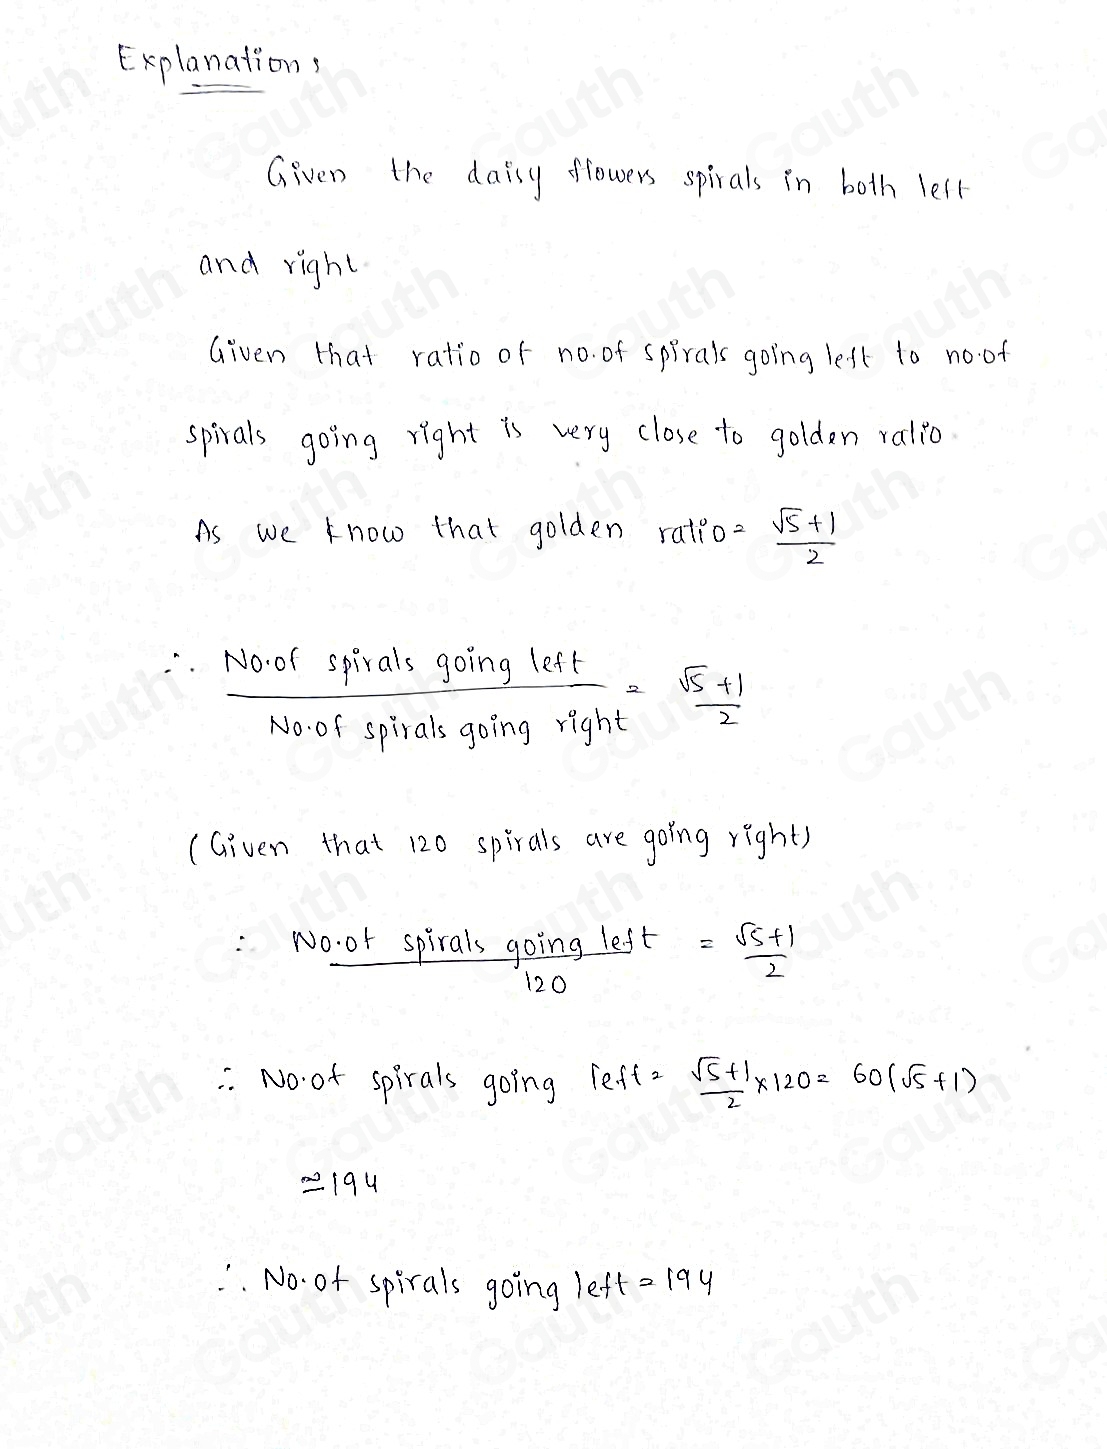 Explanation:
Given the daisy flowers spirals in both left
and right.
Given that ratio of no.of spirals going left to no.of
spirals going right is very close to golden ratio.
As we know that golden ratio = √5+1/2
∴ No.of spirals going left / No.of spirals going right = √5+1/2
(Given that 120 spirals are going right)
∴ No.of spirals going left / 120 = √5+1/2
∴ No.of spirals going left = √5+1/2 × 120 = 60(√5+1)
≃ 194
∴ No.of spirals going left = 194
Gauth